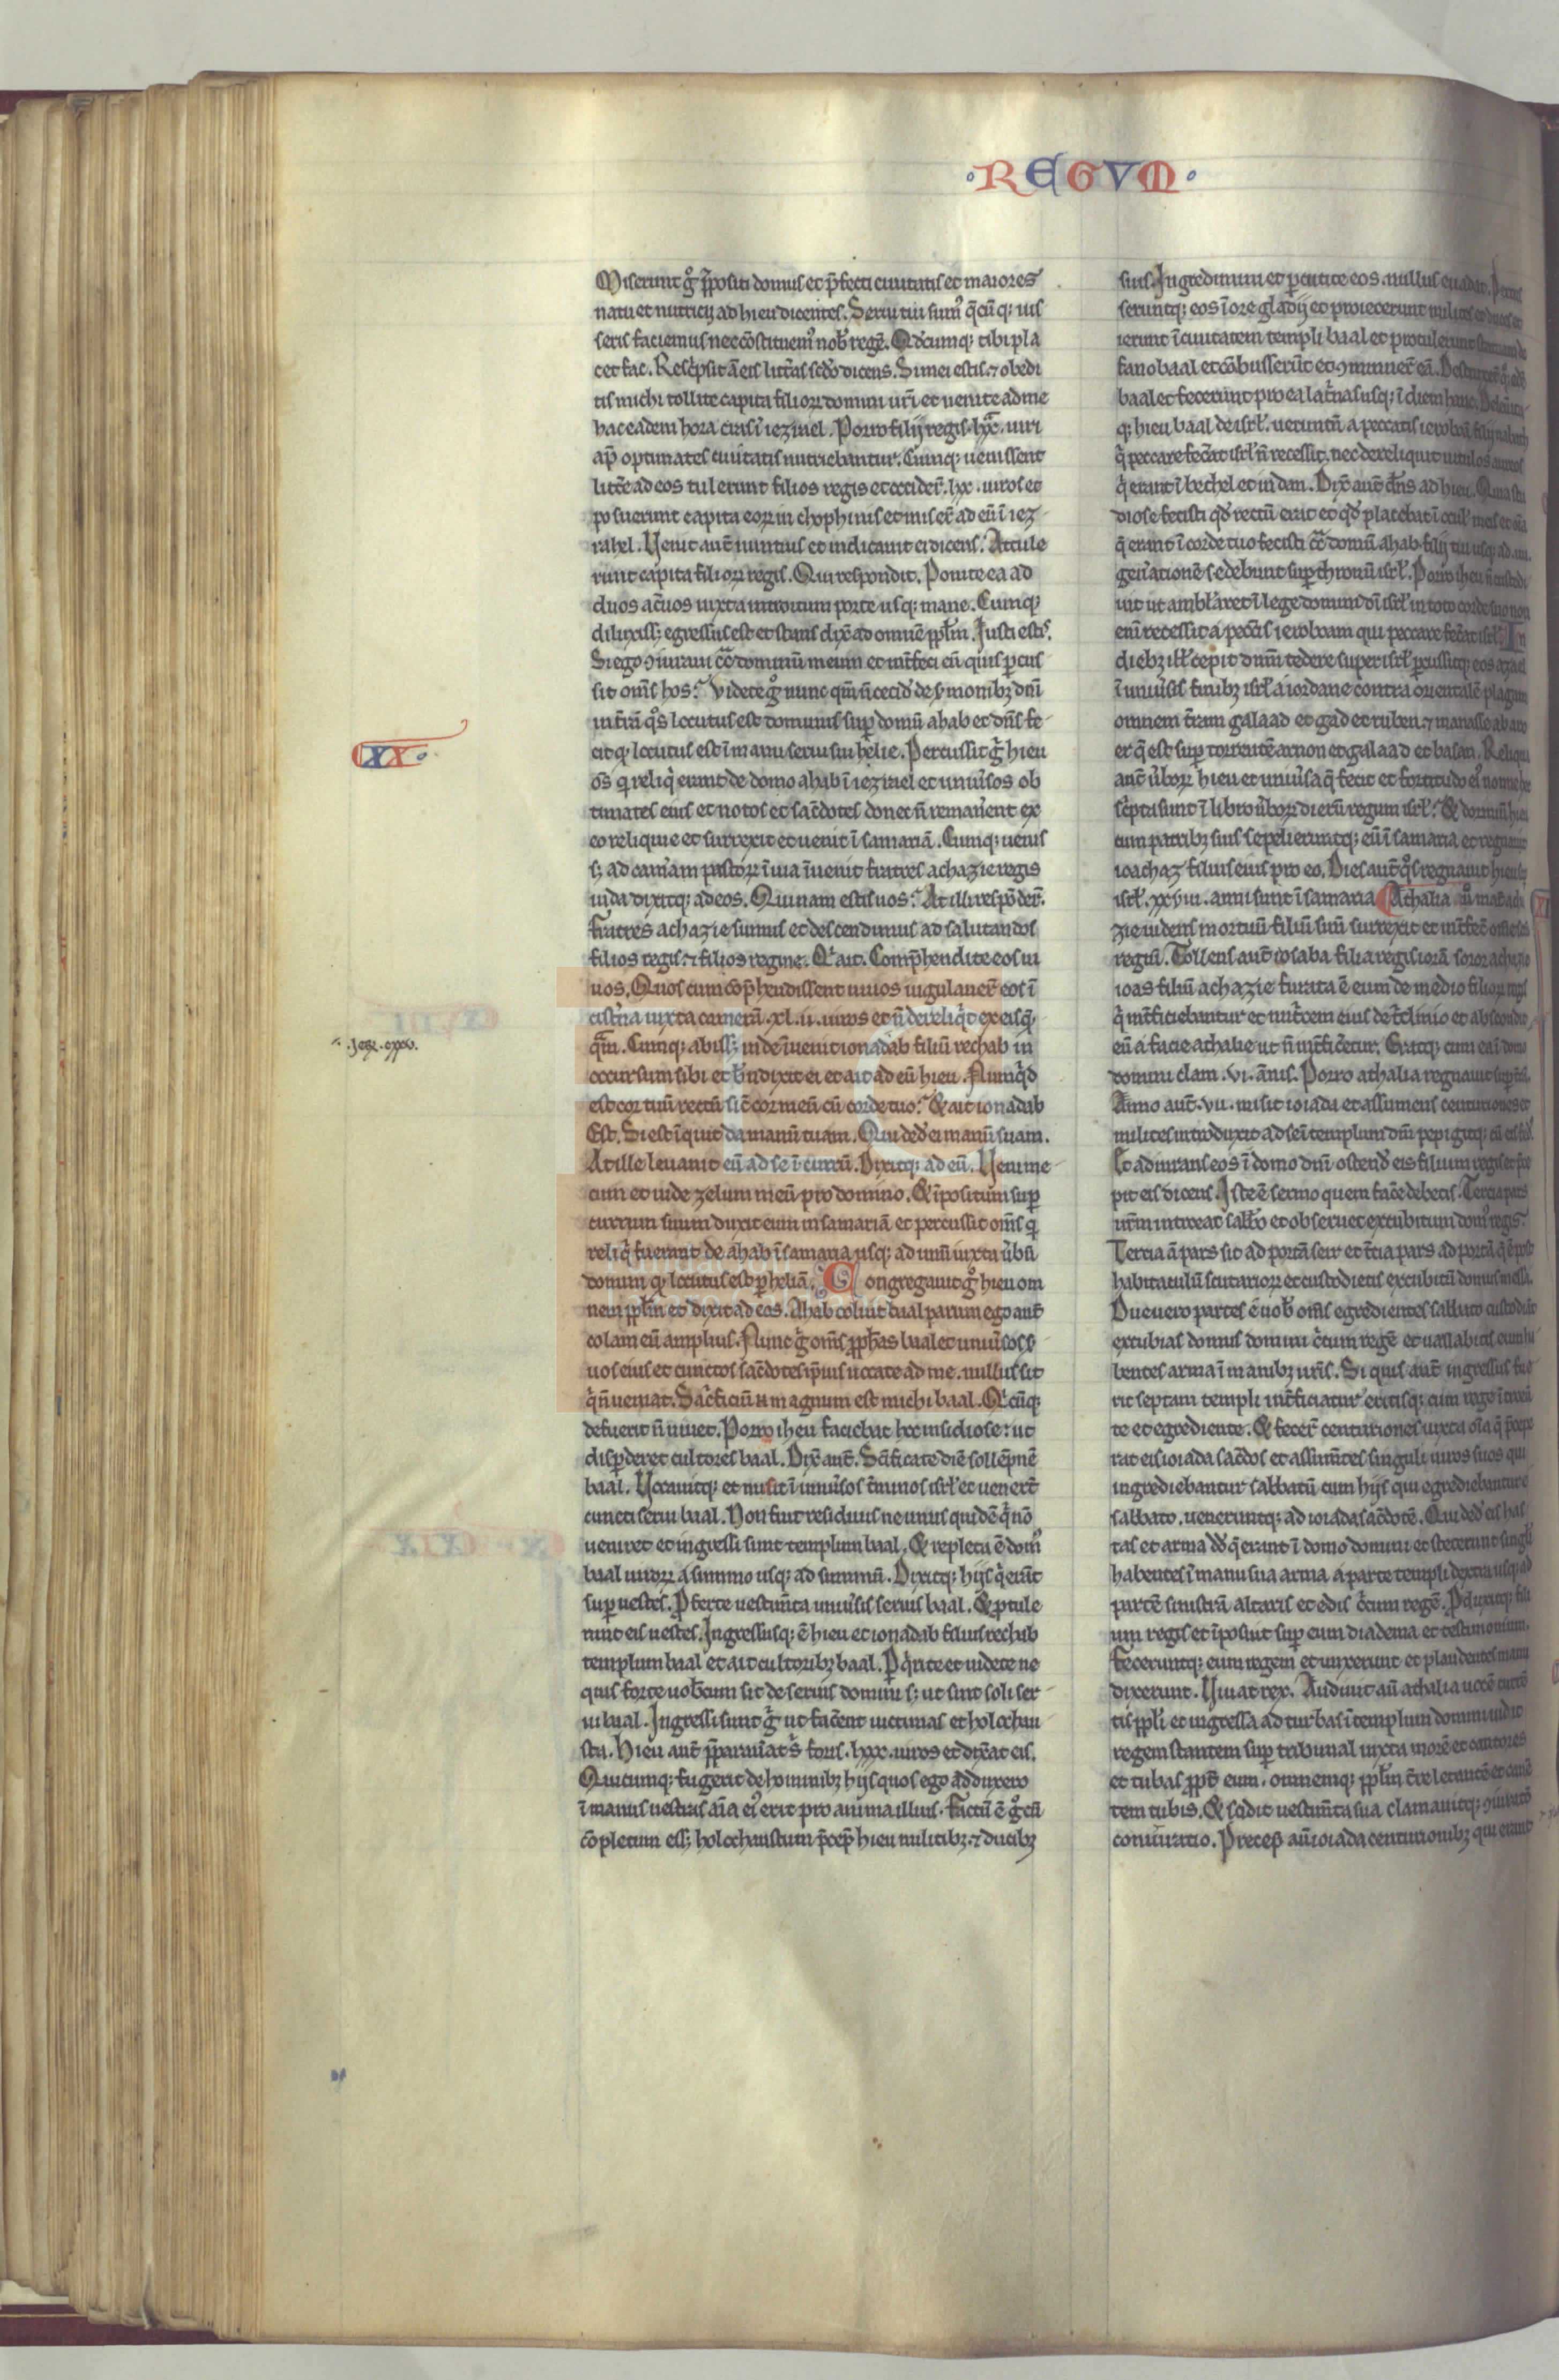 REGVM
Miserunt g̊ p̄positi domus et p̄fecti ciuitatis et maiores
natu et nutricij ad hieu dicentes. Serui tui sum᷒ q̄cūq; ius
seris faciemus nec cōstituem᷒ nob̄ regē. Qd̄cumq; tibi pla
cet fac. Resc̄psit ā eis litt̄as sc̄do dicens. Si mei estis ⁊ obedi
tis michi tollite capita filioꝝ domini ur̄i et uenite ad me
hac eadem hora cras ī iezrael. Porro filij regis .lxx. uiri
ap̄ optimates ciuitatis nutriebantur. Cumq; uenissent
litt̄e ad eos tulerunt filios regis et occider̄t .lxx. uiros et
posuerunt capita eoꝝ in chophinis et miser̄t ad eū ī iez
rahel. Uenit aut̄ nuntius et indicauit ei dicens. Attule
runt capita filioꝝ regis. Qui respondit. Ponite ea ad
duos ac̄uos iuxta introitum porte usq; mane. Cumq;
diluxiss; egressus est et stans dix̄ ad omnē pp̄lm. Iusti estis.
Si ego ꝯiuraui cōt̄ dominum meum et int̄feci eū quis p̲cus
sit om̄s hos? Videte g̊ nunc qm̄ n̄ cecid̄ de s̄monibꝫ dn̄i
in t̄rā q̊s locutus est dominus sup̲ domū ahab et dn̄s fe
cit qd̄ locutus est ī manu serui sui helie. Percussit g̊ hieu
om̄s q̄ reliq̄ erant de domo ahab ī iezrael et uniu̅sos ob
timates eius et notos et sac̄dotes donec n̄ reman̄ent ex
eo reliquie et surrexit et uenit ī samariā. Cumq; uenis
s; ad cam̄am pastoꝝ ī uia īuenit fratres achazie regis
iuda dixitq; ad eos. Quinam estis uos? At illi respōder̄t.
Fratres achazie sumus et descendimus ad salutandos
filios regis ⁊ filios regine. Q̄ ait. Comp̄hendite eos ui
uos. Quos cum cōp̄hendissent uiuos iugulauer̄t eos ī
cist̄na iuxta camerā .xl.ii. uiros et n̄ dereliq̄t ex eis q̄
q̄m. Cumq; abiss; inde īuenit ionadab filiū rechab in
occursum sibi et b̄ndixit ei et ait ad eū hieu. Numq̄d
est cor tuū rectū sic̄ cor meū cū corde tuo? Et ait ionadab
Est. Si est īquit da manū tuam. Qui ded̄ ei manū suam.
At ille leuauit eū ad se ī currū. Dixitq; ad eū. Ueni me
cum et uide zelum meū pro domino. Et īpositum sup̲
currum suum duxit eum in samariā et percussit om̄s q̄
reliq̄ fuerant de ahab ī samaria usq; ad unū iuxta u̅bū
domini qd̄ locutus est p̲ heliā. Congregauit g̊ hieu om
nem pp̄lm et dixit ad eos. Ahab coluit baal parum ego aut̄
colam eū amplius. Nunc g̊ om̄s pp̄has baal et uniu̅sos s̄
uos eius et cunctos sac̄dotes ip̄ius uocate ad me. nullus sit
q̄ n̄ ueniat. Sac̄ficiū .n. magnum est michi baal. Q̄cūq;
defuerit n̄ uiuet. Porro iheu faciebat hoc insidiose: ut
disp̲deret cultores baal. Dix̄ aut̄. Sc̄ificate diē sollēpnē
baal. Uocauitq; et misit ī uniu̅sos t̄minos isrl̄ et uener̄t
cuncti serui baal. Non fuit residuus ne unus quidē q̄ nō
ueniret et ingressi sunt templum baal. Et repleta ē dom᷒
baal uiuoꝝ a summo usq; ad summū. Dixitq; hijs q̄ erāt
sup̲ uestes. Pferte uestim̄ta uniu̅sis seruis baal. Et ptule
runt eis uestes. Ingressusq; ē hieu et ionadab filius rechab
templum baal et ait cultoribꝫ baal. Pq̄rite et uidete ne
quis forte uob̄cum sit de seruis domini s; ut sint soli ser
ui baal. Ingressi sunt g̊ ut fac̄ent uictimas et holochau
sta. Hieu aut̄ p̄parau̅at s̄ foris .lxxx. uiros et dix̄at eis.
Quicumq; fugerit de hominibꝫ hijs quos ego adduxero
ī manus uestras aīa ei᷒ erit pro anima illius. Factū ē g̊ cū
cōpletum ess; holochaustum p̄cep̄ hieu militibꝫ ⁊ ducibꝫ
XX
suis. Ingredimini et p̲cutite eos. nullus euadat.
seruntq; eos ī ore gladij et proiecerunt milites et duces et
ierunt ī ciuitatem templi baal et protulerunt statuam de
fano baal et cōbusserūt et ꝯminuer̄t eā.
baal et fecerunt pro ea lat̄nas usq; ī diem hanc.
q; hieu baal de isrl̄. ueruntū a peccatis ieroboā filij nabath
q̄ peccare fec̄at isrl̄ n̄ recessit. nec dereliquit uitulos aureos
q̄ erant ī bethel et in dan. Dix̄ aut̄ dn̄s ad hieu. Quia stu
diose fecisti qd̄ rectū erat et qd̄ placebat ī ocul̄ meis et oīa
q̄ erant ī corde tuo fecisti cōt̄ domū ahab filij tui usq; ad .iiii.
gen̄ationē sedebunt sup̲ thronū isrl̄. Porro iheu n̄ custodi
uit ut ambl̄aret ī lege domini dī isrl̄ in toto corde suo non
enī recessit a pecc̄is ieroboam qui peccare fec̄at isrl̄. In
diebꝫ ill̄ cepit dn̄m tedere super isrl̄ p̲cussitq; eos azael
ī uniu̅sis finibꝫ isrl̄ a iordane contra orientalē plagam
omnem t̄ram galaad et gad et ruben ⁊ manasse ab aro
er q̄ est sup̲ torrentē arnon et galaad et basan. Reliqua
aut̄ u̅boꝝ hieu et uniu̅sa q̄ fecit et fortitudo ei᷒ nonne hec
sc̄pta sunt ī libro u̅boꝝ dierū regum isrl̄? Et dormiuit hieu
cum patribꝫ suis sepelieruntq; eū ī samaria et regnauit
ioachaz filius eius pro eo. Dies aut̄ q̊s regnauit hieu sup̲
isrl̄ .xxviii. anni sunt ī samaria. Athalia u̅o mat̄ acha
zie uidens mortuū filiū suū surrexit et int̄fec̄ om̄e sem̄
regiū. Tollens aut̄ iosaba filia regis iorā soror achazie
ioas filiū achazie furata ē eum de medio filioꝝ regis
q̄ int̄ficiebantur et nut̄cem eius de t̄clinio et abscondit
eū a facie athalie ut n̄ int̄fic̄etur. Eratq; cum ea ī domo
domini clam .vi. annis. Porro athalia regnauit sup̲ t̄rā.
Anno aut̄ .vii. misit ioiada et assumens centuriones et
milites introduxit ad se ī templum dn̄i pepigitq; cū eis fed̄
Et adiurans eos ī domo dn̄i ostend̄ eis filium regis et p̄ce
pit eis dicens. Iste ē sermo quem fac̄e debetis. Tercia pars
ur̄m introeat sabb̄o et obseruet excubitum dom᷒ regis.
Tercia ā pars sit ad portā seir et t̄cia pars ad portā q̄ ē post
habitaculū scutarioꝝ et custodietis excubitū domus messa.
Due uero partes ē uob̄ om̄s egredientes sabbato custodiāt
excubias domus domini c̄cum regē et uallabitis eum ha
bentes arma ī manibꝫ ur̄is. Si quis aut̄ ingressus fue
rit septam templi int̄ficiatur eritisq; cum rege ītroeū
te et egrediente. Et fecer̄t centuriones iuxta oīa q̄ p̄cepe
rat eis ioiada sac̄dos et assum̄tes singuli uiros suos qui
ingrediebantur sabbatū cum hijs qui egrediebantur e
sabbato. ueneruntq; ad ioiada sac̄dotē. Qui ded̄ eis has
tas et arma dd̄ q̄ erant ī domo domini et steterunt singl̄i
habentes ī manu sua arma a parte templi dextra usq; ad
partē sinistrā altaris et edis c̄cum regē. Pduxitq; fili
um regis et īposuit sup̲ eum diadema et testimonium.
feceruntq; eum regem et unxerunt et plaudentes manu
dixerunt. Uiuat rex. Audiuit aū athalia uocē currē
tis pp̄li et ingressa ad turbas ī templum domini uidit
regem stantem sup̲ tribunal iuxta morē et cantores
et tubas pp̄e eum. omnemq; pp̄lm t̄re letantē et canē
tem tubis. Et scidit uestim̄ta sua clamauitq; ꝯiuratō
coniuratio. Precep̄ aū ioiada centurionibꝫ qui erant